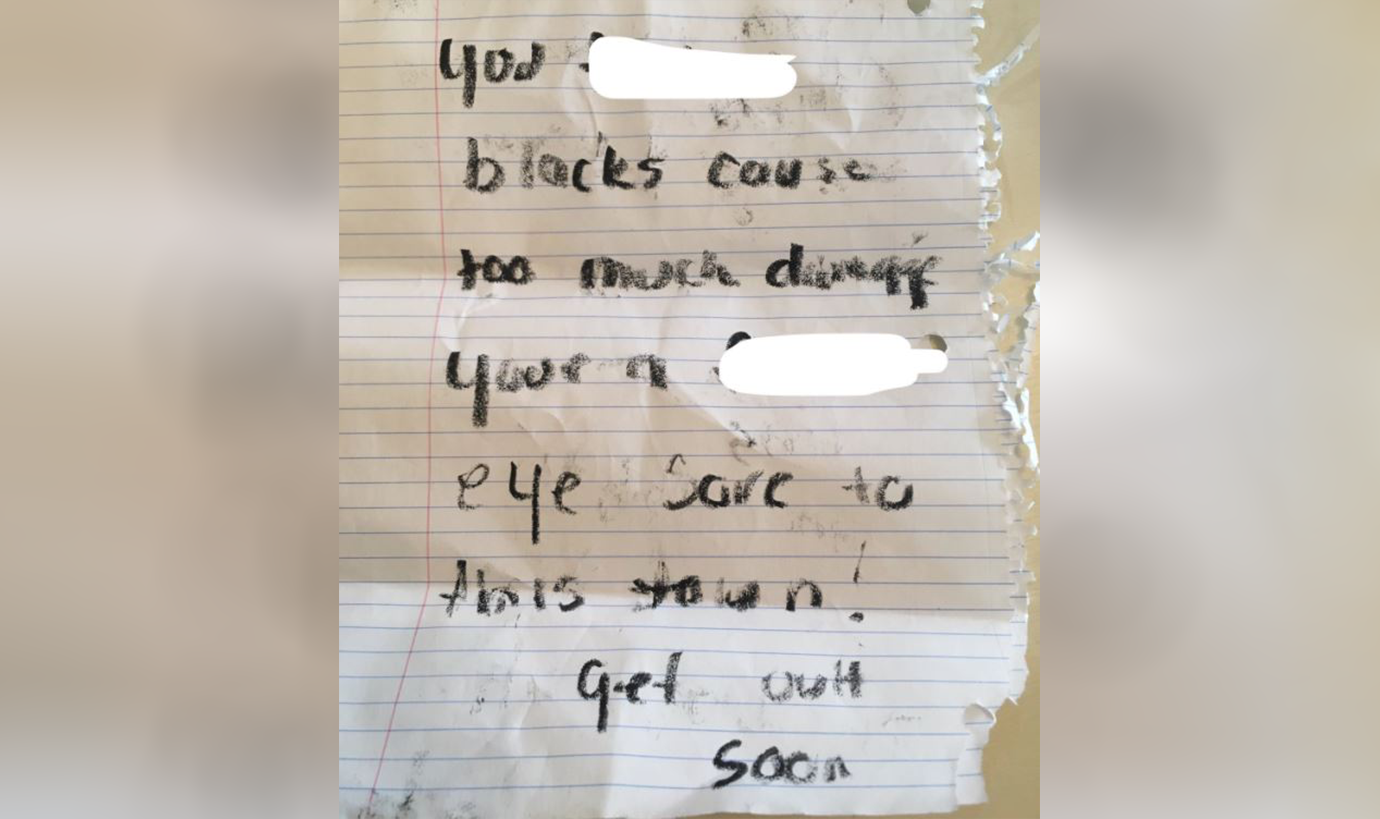 you
blacks cause
too much damage
your a
eye sore to
this town!
get outt
soon